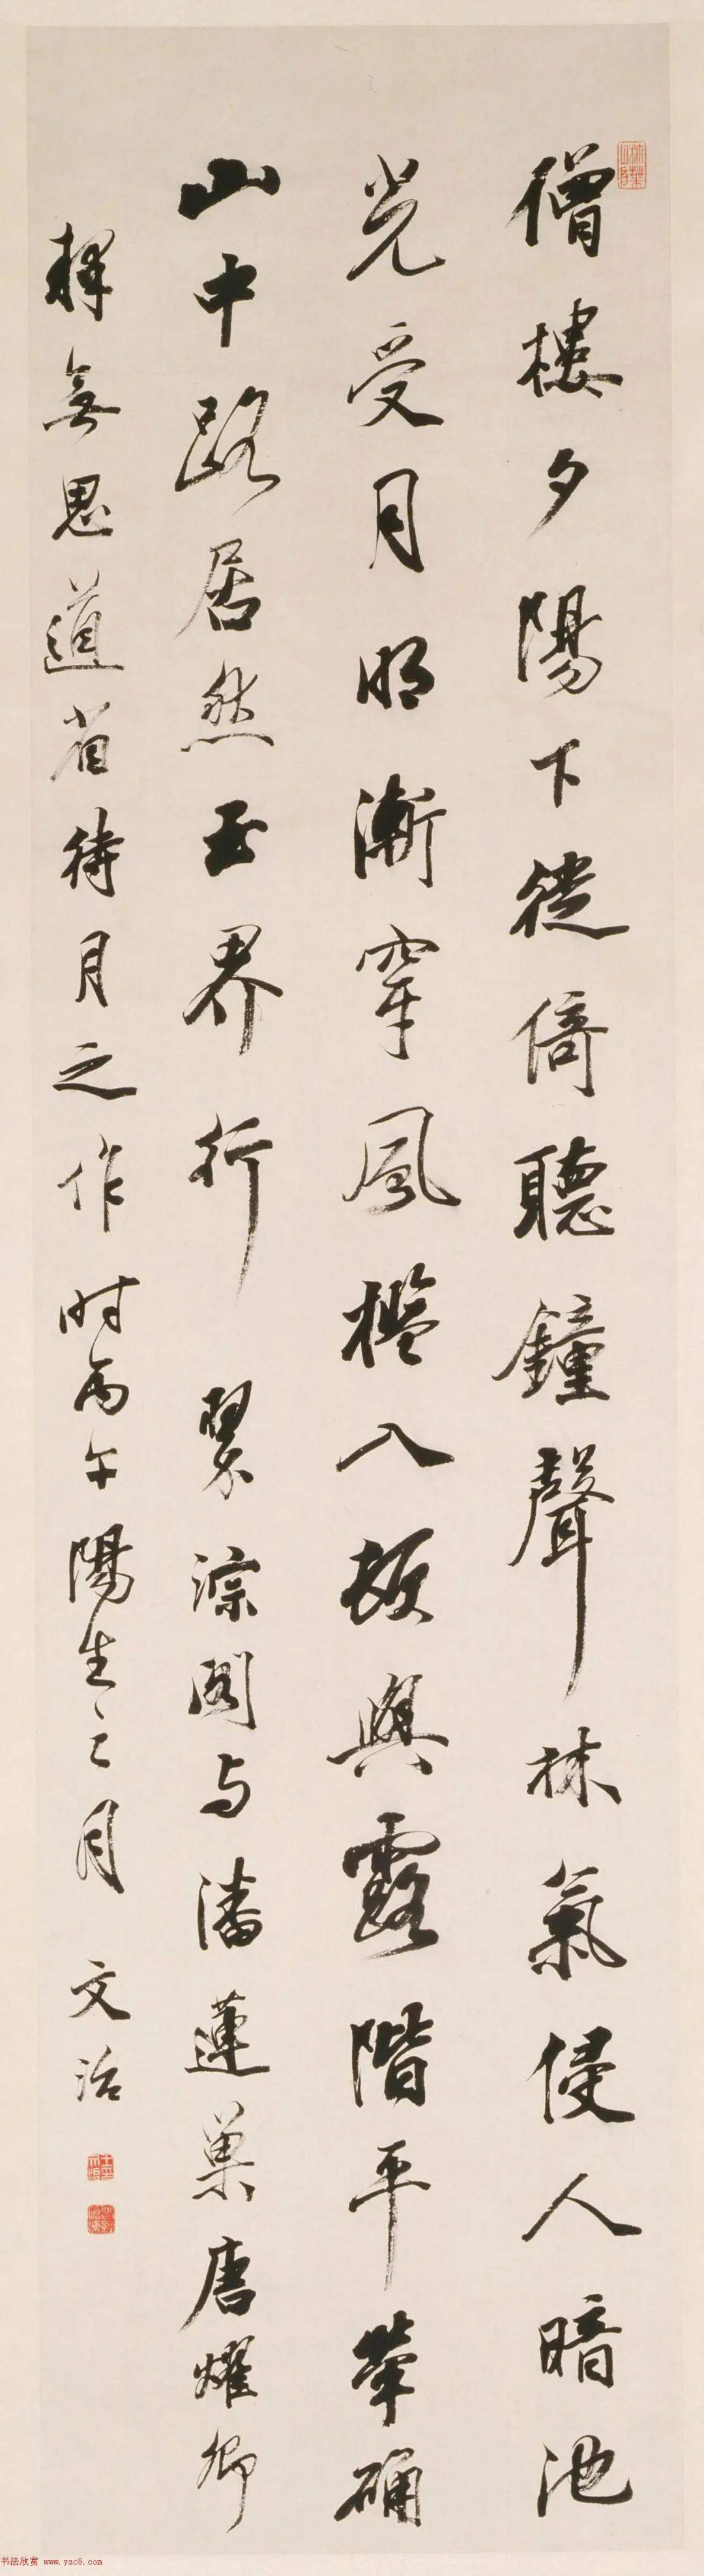 僧樓夕陽下徙倚聽鐘聲林氣侵人暗池
光受月明漸穿風檻入頓與露階平犖确
山中路居然玉界行 翠淙閣与潘蓮巢唐燿卿
釋無思道省待月之作时丙午陽生之月 文治
书法欣赏 www.yac8.com